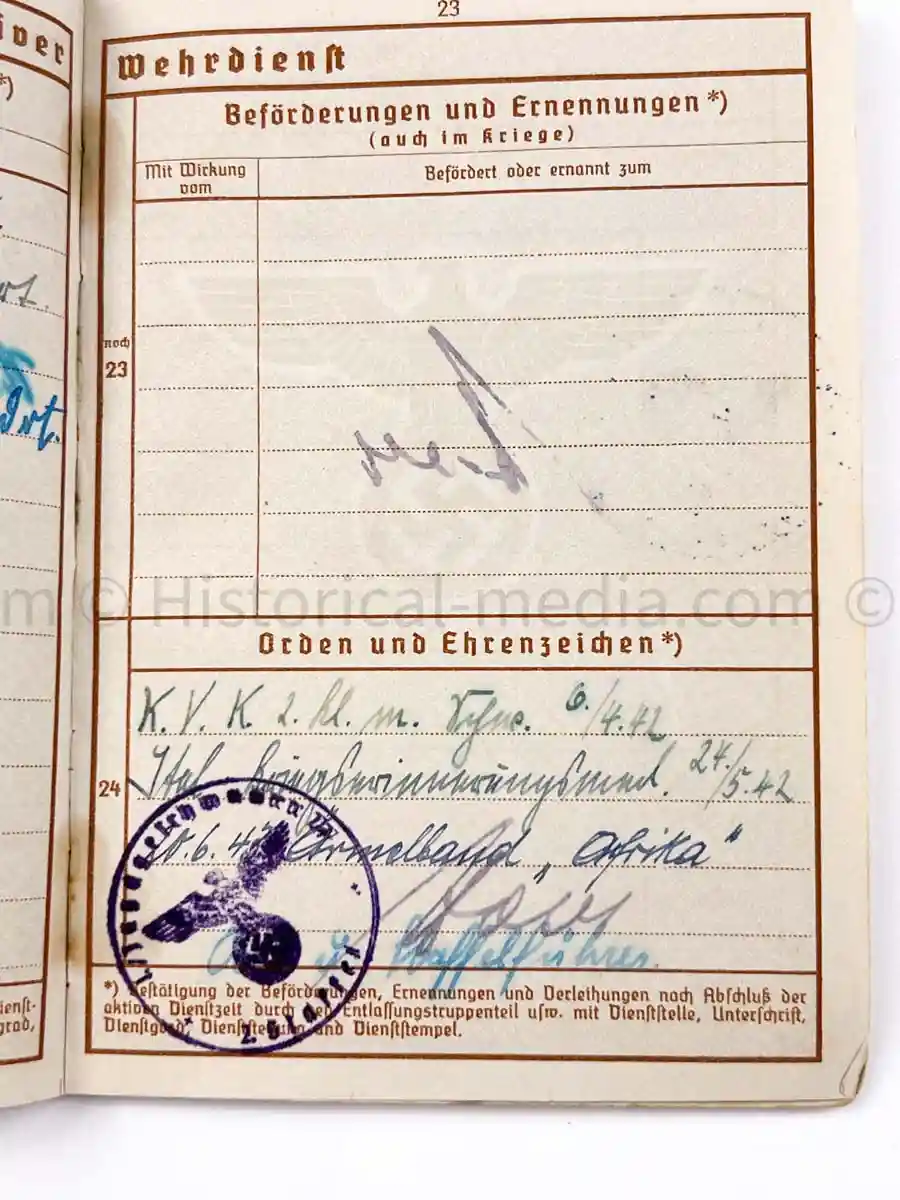 23
iver
Wehrdienst
*)
Beförderungen und Ernennungen *)
(auch im Kriege)
Mit Wirkung vom
Befördert oder ernannt zum
noch
23
rt.
© Historical-media.com ©
Orden und Ehrenzeichen *)
K. V. K. 2. Kl. m. Schw. 6./4.42
24
Ital. Kriegserinnerungsmed. 24./5.42
20.6.43 Ärmelband „Afrika"
Staffelführer.
*) Bestätigung der Beförderungen, Ernennungen und Verleihungen nach Abschluß der
aktiven Dienstzeit durch den Entlassungstruppenteil usw. mit Dienststelle, Unterschrift,
Dienstgrad, Dienststellung und Dienststempel.
ienst-
grad,
2. Staffel